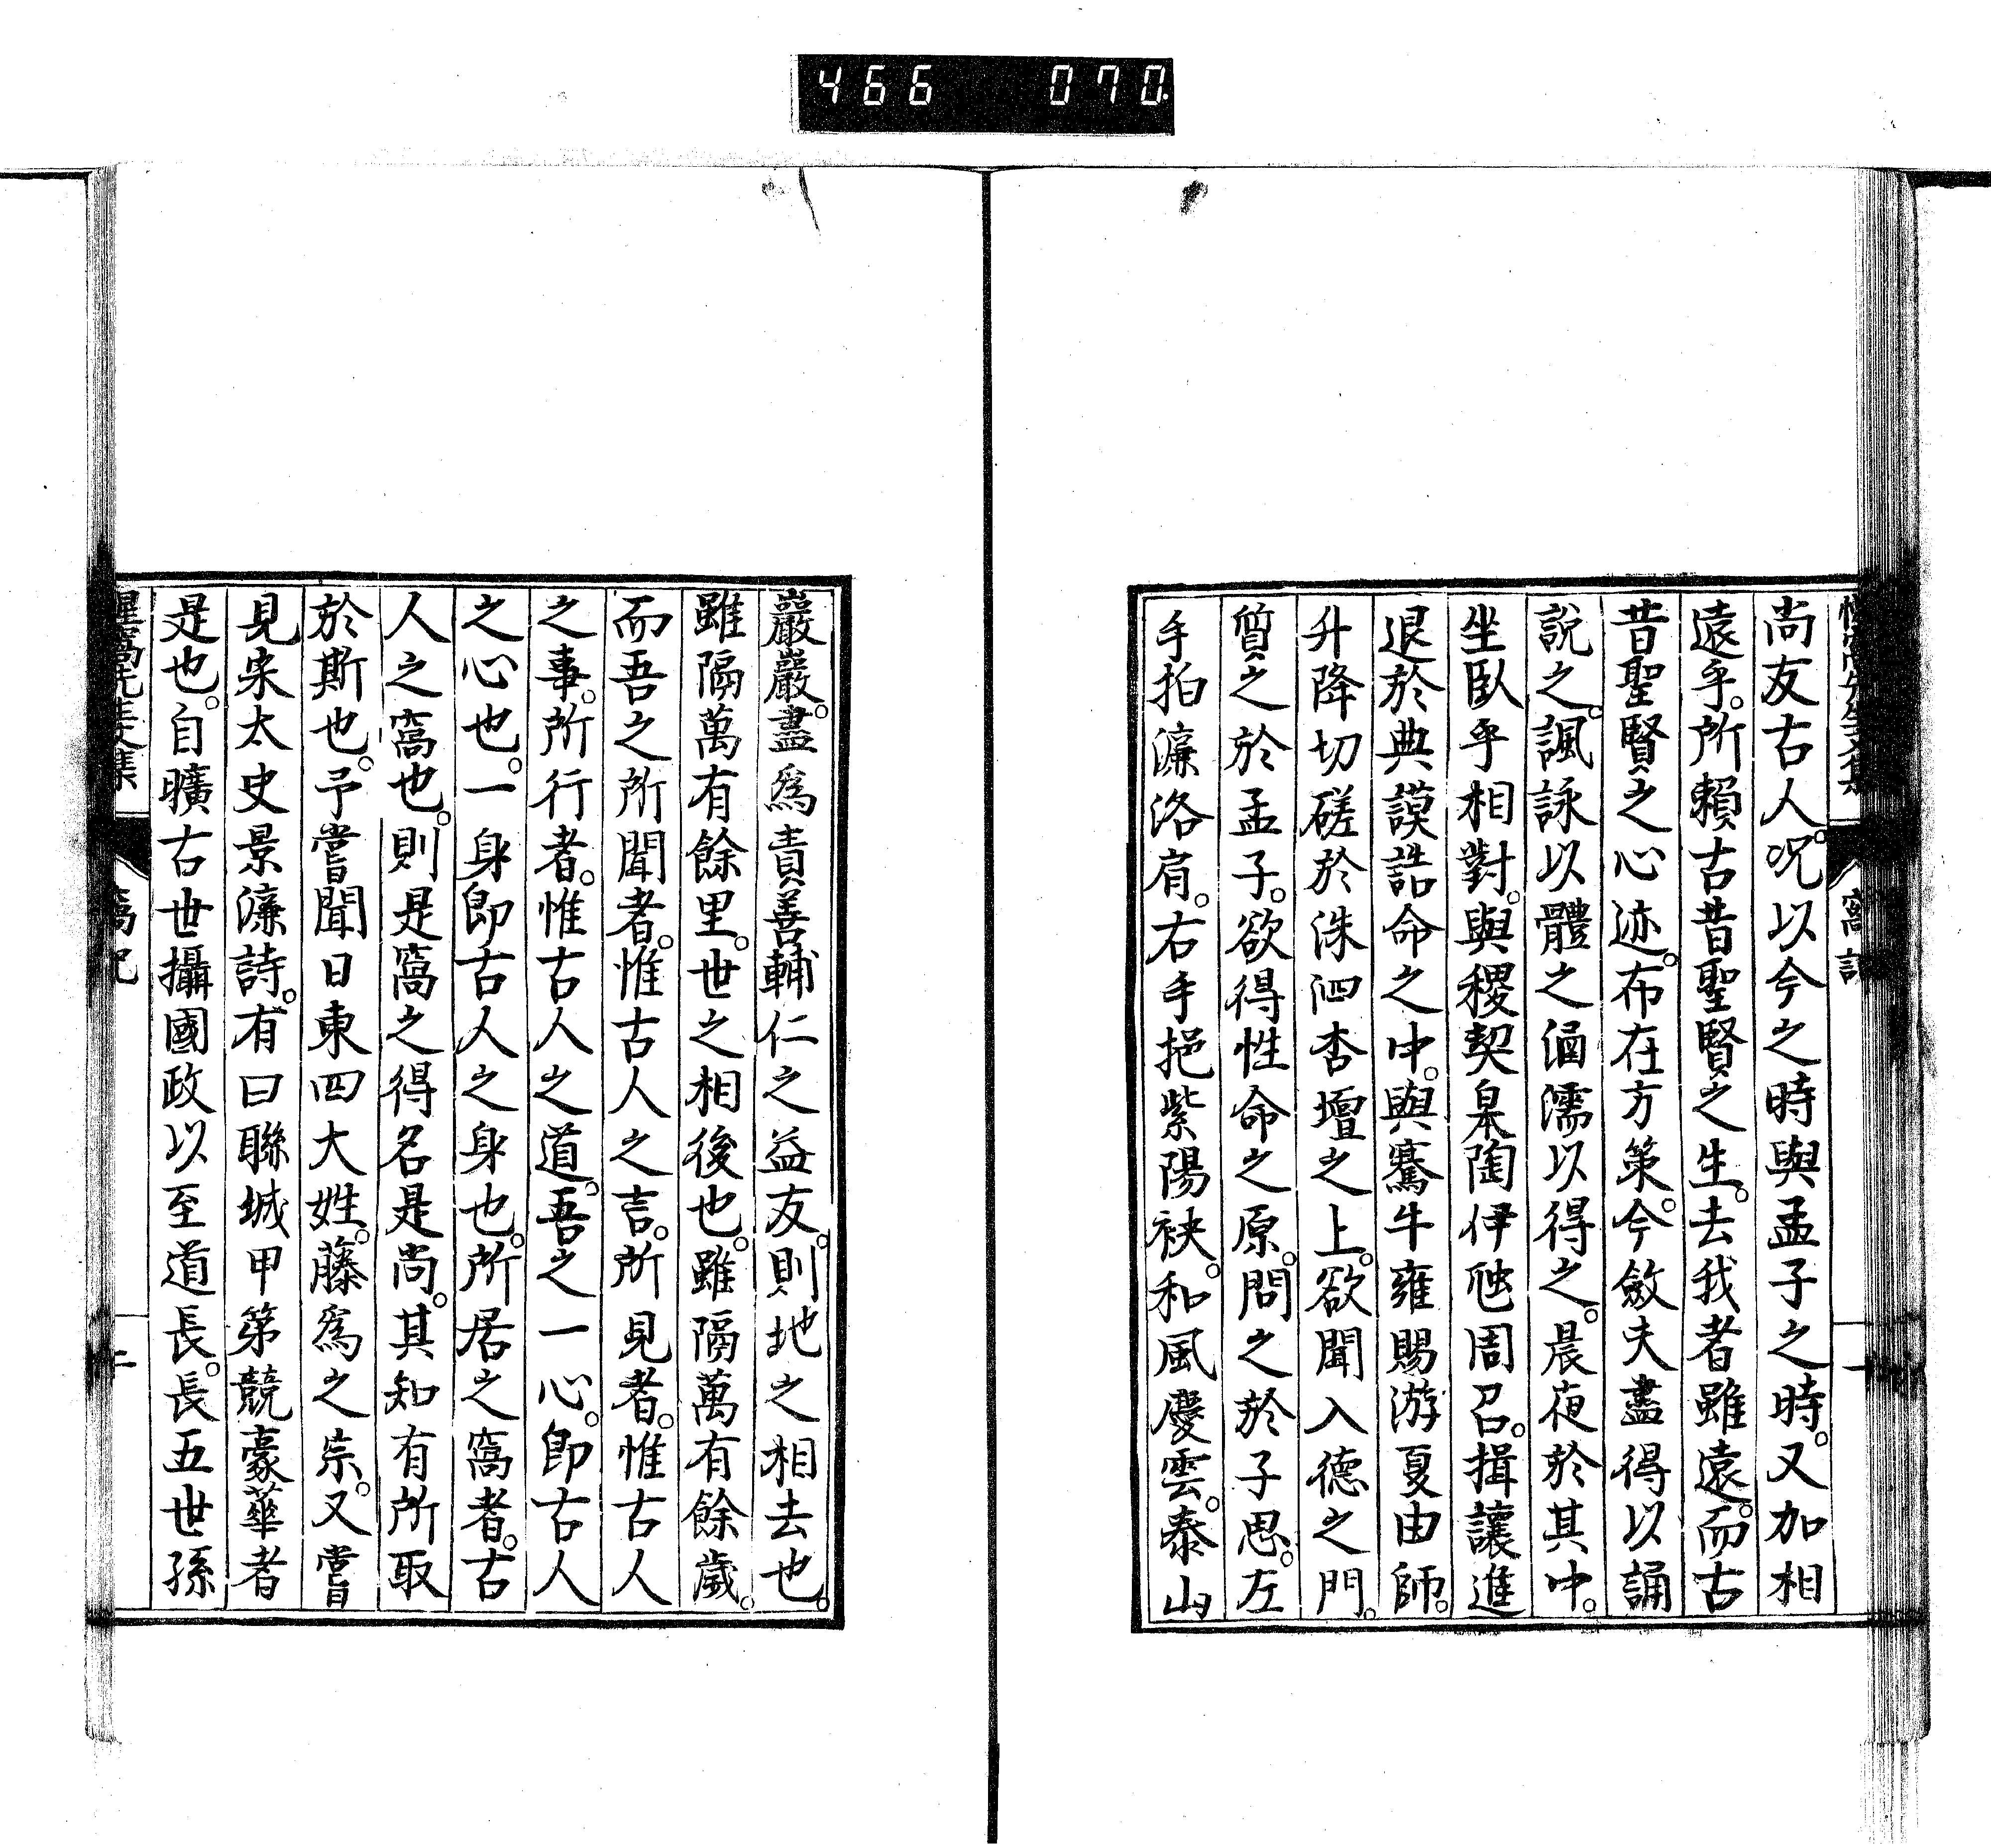 466 070
窩記
尚友古人。况以今之時與孟子之時。又加相
遠乎。所賴古昔聖賢之生。去我者雖遠。而古
昔聖賢之心迹。布在方策。今斂夫盡得以誦
說之。諷詠以體之涵濡以得之。晨夜於其中。
坐臥乎相對。與稷契皐陶伊虺周召。揖讓進
退於典謨誥命之中。與騫牛雍賜游夏由師。
升降切磋於洙泗杏壇之上。欲聞入德之門。
質之於孟子。欲得性命之原。問之於子思。左
手拍濂洛肩。右手挹紫陽袂。和風慶雲。泰山
巖巖。盡爲責善輔仁之益友。則地之相去也。
雖隔萬有餘里。世之相後也。雖隔萬有餘歲。
而吾之所聞者。惟古人之言。所見者。惟古人
之事。所行者。惟古人之道。吾之一心。卽古人
之心也。一身卽古人之身也。所居之窩者。古
人之窩也。則是窩之得名是尚。其知有所取
於斯也。予嘗聞日東四大姓。藤爲之宗。又嘗
見宋太史景濂詩。有曰聯城甲第競豪華者
是也。自曠古世攝國政以至道長。長五世孫
惺窩先生文集 窩記 二